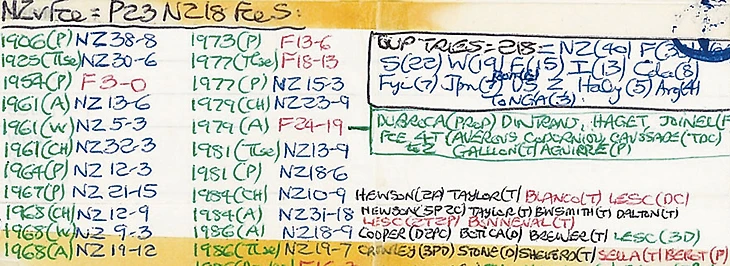 NZ v Fce = P23 NZ18 Fce 5:
1906(P) NZ 38-8
1925(Tlse) NZ 30-6
1954(P) F 3-0
1961(A) NZ 13-6
1961(W) NZ 5-3
1961(CH) NZ 32-3
1964(P) NZ 12-3
1967(P) NZ 21-15
1968(CH) NZ 12-9
1968(W) NZ 9-3
1968(A) NZ 19-12
1973(P) F 13-6
1977(Tlse) F 18-13
1977(P) NZ 15-3
1979(CH) NZ 23-9
1979(A) F 24-19
1981(Tlse) NZ 13-9
1981(P) NZ 18-6
1984(CH) NZ 10-9 HEWSON(2P) TAYLOR(T) BLANCO(T) LESC(DC)
1984(A) NZ 31-18 HEWSON(5P2C) TAYLOR(T) BWSMITH(T) DALTON(T)
LESC(2T2P) BONNEVAL(T)
1986(A) NZ 18-9 COOPER(D2PC) BOTICA(D) BREWER(T) LESC(3D)
1986(Tlse) NZ 19-7 CROWLEY(3PD) STONE(D) SHELFORD(T) SELLA(T) BEROT(P)
CUP TRIES = 218 = NZ(40)
S(22) W(19) E(15) I(13) Cda(8)
Fyi(7) Jpn(7) US 2 Italy(5) Arg(4)
TONGA(3)
DUBROCA(PROP) DINTRANS, HAGET, JOINEL
FCE 4T (AVEROUS CODORNIOU CAUSSADE(TDC)
GALLION(T) AGUIRRE(P)